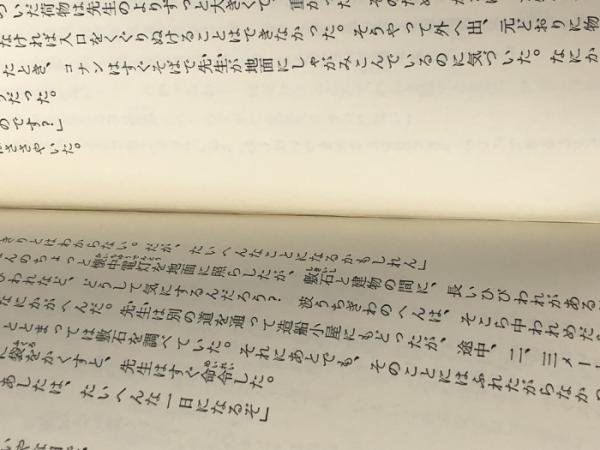 ついた荷物は先生のよりずっと大きくて、重かった。そのため
なければ入口をくぐりぬけることはできなかった。そうやって外へ出、元どおりに物
たとき、コナンはすぐそばで先生が地面にしゃがみこんでいるのに気づいた。なにか
りだった。
のです？」
はささやいた。
きりとはわからない。だが、たいへんなことになるかもしれん」
んのちょっと懐中電灯を地面に照らしたが、敷石と建物の間に、長いひびわれがある
びわれなど、どうして気にするんだろう？　波うちぎわのへんは、そこら中われめだ
なにかがへんだ。先生は別の道を通って造船小屋にもどったが、途中、二、三メート
とどまっては敷石を調べていた。それにあとでも、そのことにはふれたがらなかっ
に袋をかくすと、先生はすぐ命令した。
あしたは、たいへんな一日になるぞ」